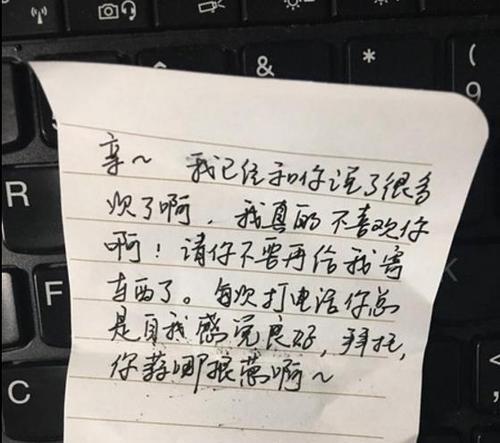 & * (
9
R
F
C
亲~ 我已经和你说了很多
次了啊，我真的不喜欢你
啊！请你不要再给我寄
东西了。每次打电话你总
是自我感觉良好，拜托，
你蒜哪根葱啊~